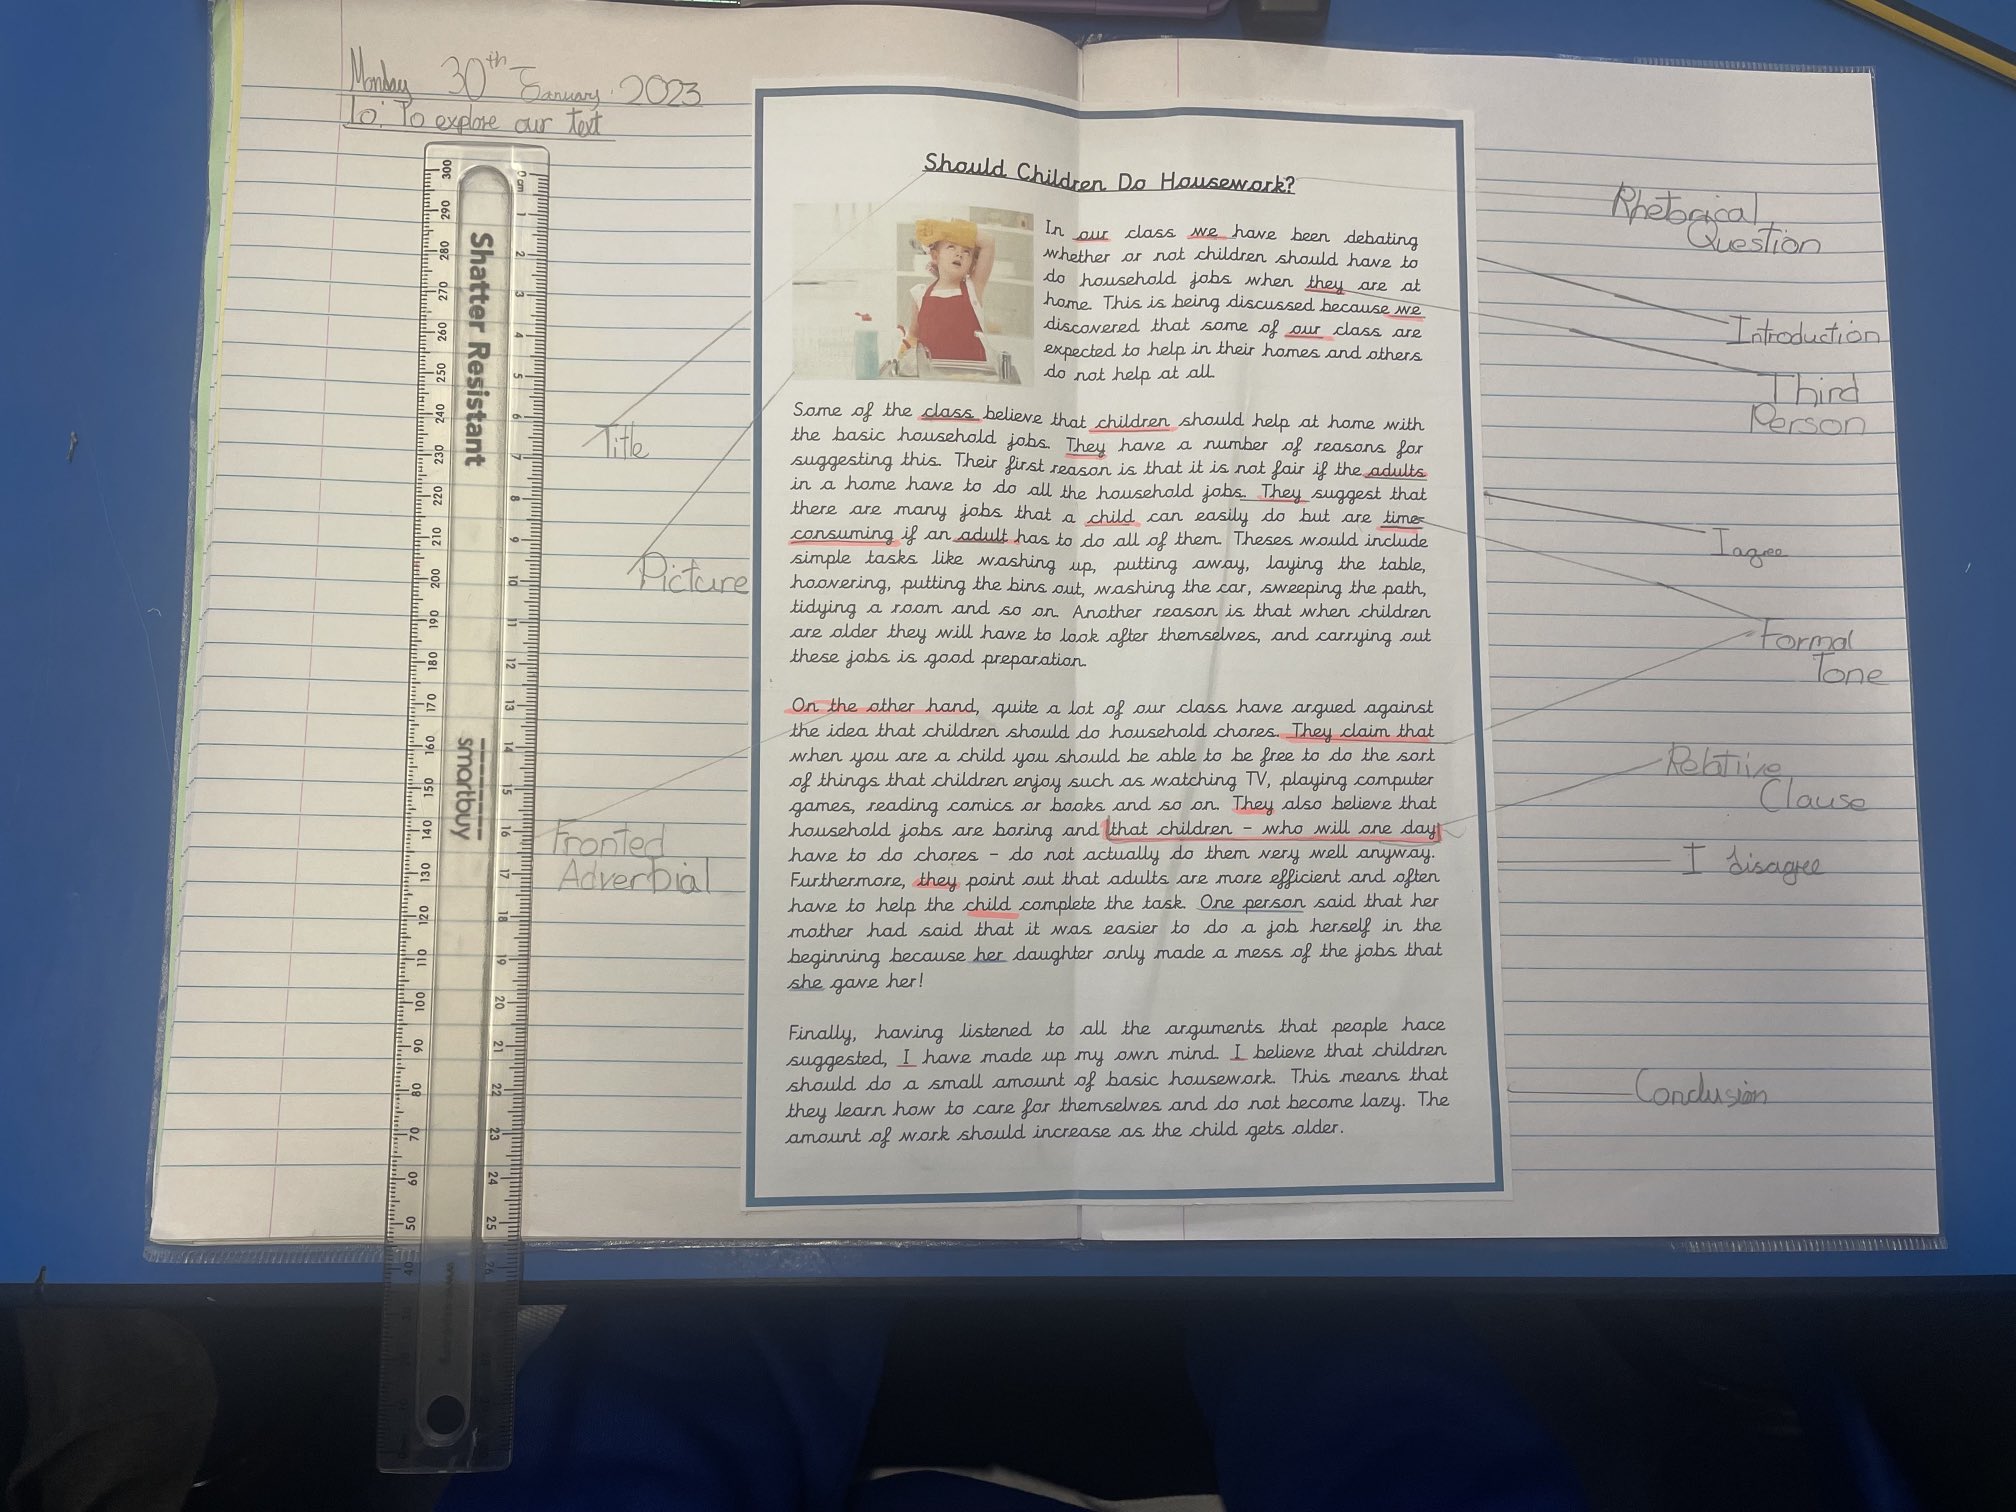 Monday 30th January 2023
Lo: To explore our text
Should Children Do Housework?
In our class we have been debating
whether or not children should have to
do household jobs when they are at
home. This is being discussed because we
discovered that some of our class are
expected to help in their homes and others
do not help at all.
Some of the class believe that children should help at home with
the basic household jobs. They have a number of reasons for
suggesting this. Their first reason is that it is not fair if the adults
in a home have to do all the household jobs. They suggest that
there are many jobs that a child can easily do but are time
consuming if an adult has to do all of them. Theses would include
simple tasks like washing up, putting away, laying the table,
hoovering, putting the bins out, washing the car, sweeping the path,
tidying a room and so on. Another reason is that when children
are older they will have to look after themselves, and carrying out
these jobs is good preparation.
On the other hand, quite a lot of our class have argued against
the idea that children should do household chores. They claim that
when you are a child you should be able to be free to do the sort
of things that children enjoy such as watching TV, playing computer
games, reading comics or books and so on. They also believe that
household jobs are boring and that children – who will one day
have to do chores – do not actually do them very well anyway.
Furthermore, they point out that adults are more efficient and often
have to help the child complete the task. One person said that her
mother had said that it was easier to do a job herself in the
beginning because her daughter only made a mess of the jobs that
she gave her!
Finally, having listened to all the arguments that people hace
suggested, I have made up my own mind. I believe that children
should do a small amount of basic housework. This means that
they learn how to care for themselves and do not become lazy. The
amount of work should increase as the child gets older.
Title
Picture
Fronted
Adverbial
Rhetorical
Question
Introduction
Third
Person
I agree
Formal
Tone
Relatiive
Clause
I disagree
Conclusion
Shatter Resistant
smartbuy
300 290 280 270 260 250 240 230 220 210 200 190 180 170 160 150 140 130 120 110 100 90 80 70 60 50 40
0 cm 1 2 3 4 5 6 7 8 9 10 11 12 13 14 15 16 17 18 19 20 21 22 23 24 25 26